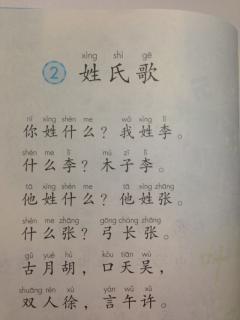 xìng shì gē
② 姓氏歌
nǐ xìng shén me wǒ xìng lǐ
你姓什么？我姓李。
shén me lǐ mù zǐ lǐ
什么李？木子李。
tā xìng shén me tā xìng zhāng
他姓什么？他姓张。
shén me zhāng gōng cháng zhāng
什么张？弓长张。
gǔ yuè hú kǒu tiān wú
古月胡，口天吴，
shuāng rén xú yán wǔ xǔ
双人徐，言午许。